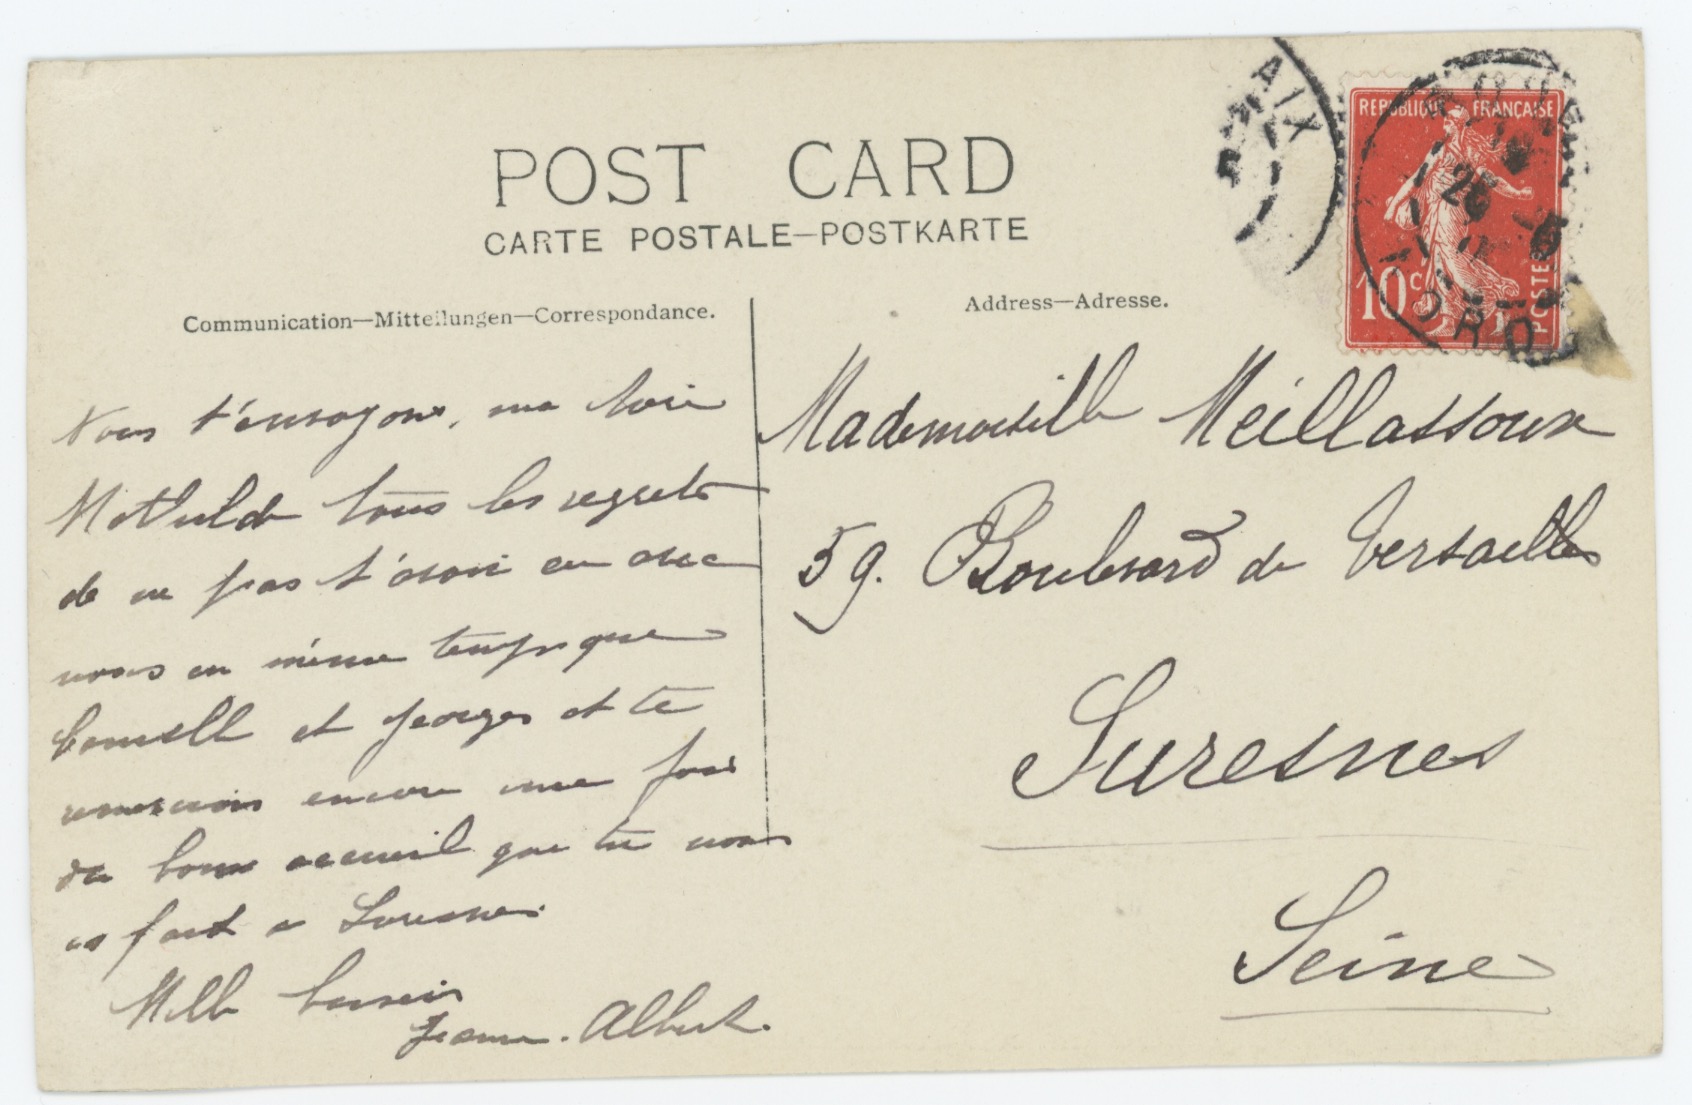 POST CARD
CARTE POSTALE—POSTKARTE
Communication—Mitteilungen—Correspondance.
Nous t'envoyons, ma
Mathilde tous les regrets
de ne pas t'avoir eu avec
nous en même temps que
Camille et Georges et te
remercions encore une fois
du bon accueil que tu nous
as fait à Suresnes.
Mille baisers
Jeanne. Albert.
Address—Adresse.
Mademoiselle Meillassoux
59. Boulevard de Versailles
Suresnes
Seine
REPUBLIQUE FRANÇAISE
10c
POSTES
AIX
NORD